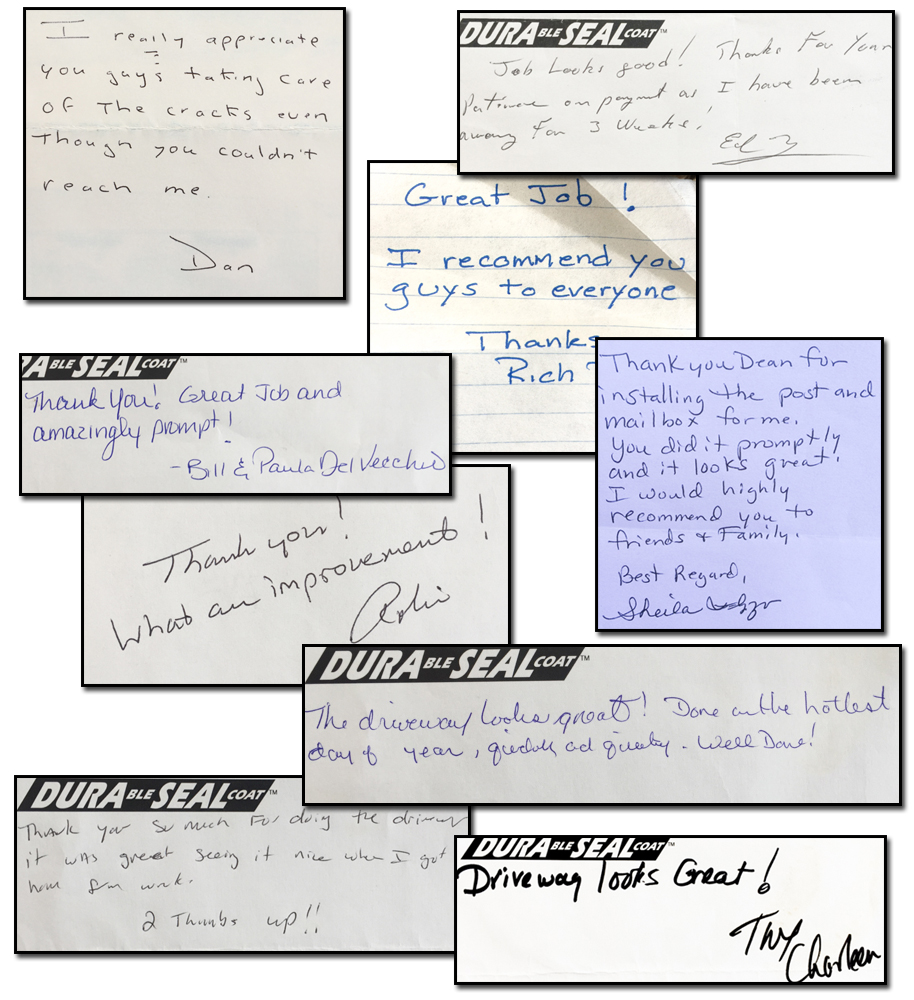 I really appreciate
you guys taking care
of the cracks even
Though you couldn't
reach me.
Dan
DURABLE SEALCOAT™
Job Looks good! Thanks For Your
Patience on payment as I have been
away For 3 Weeks!
Ed
Great Job!
I recommend you
guys to everyone
Thanks
Rich
RABLE SEALCOAT™
Thank You! Great Job and
amazingly prompt!
- Bill & Paula DelVecchio
Thank you Dean for
installing the post and
mailbox for me.
You did it promptly
and it looks great.
I would highly
recommend you to
friends & Family.
Best Regard,
Sheila
Thank you!
What an improvement!
DURABLE SEALCOAT™
The driveway looks great! Done on the hottest
day of year, quickly and quietly. Well Done!
DURABLE SEALCOAT
Thank you so much For doing the driveway
it was great seeing it nice when I got
home from work.
2 Thumbs up!!
DURABLE SEALCOAT™
Driveway looks Great!
Thx
Charleen